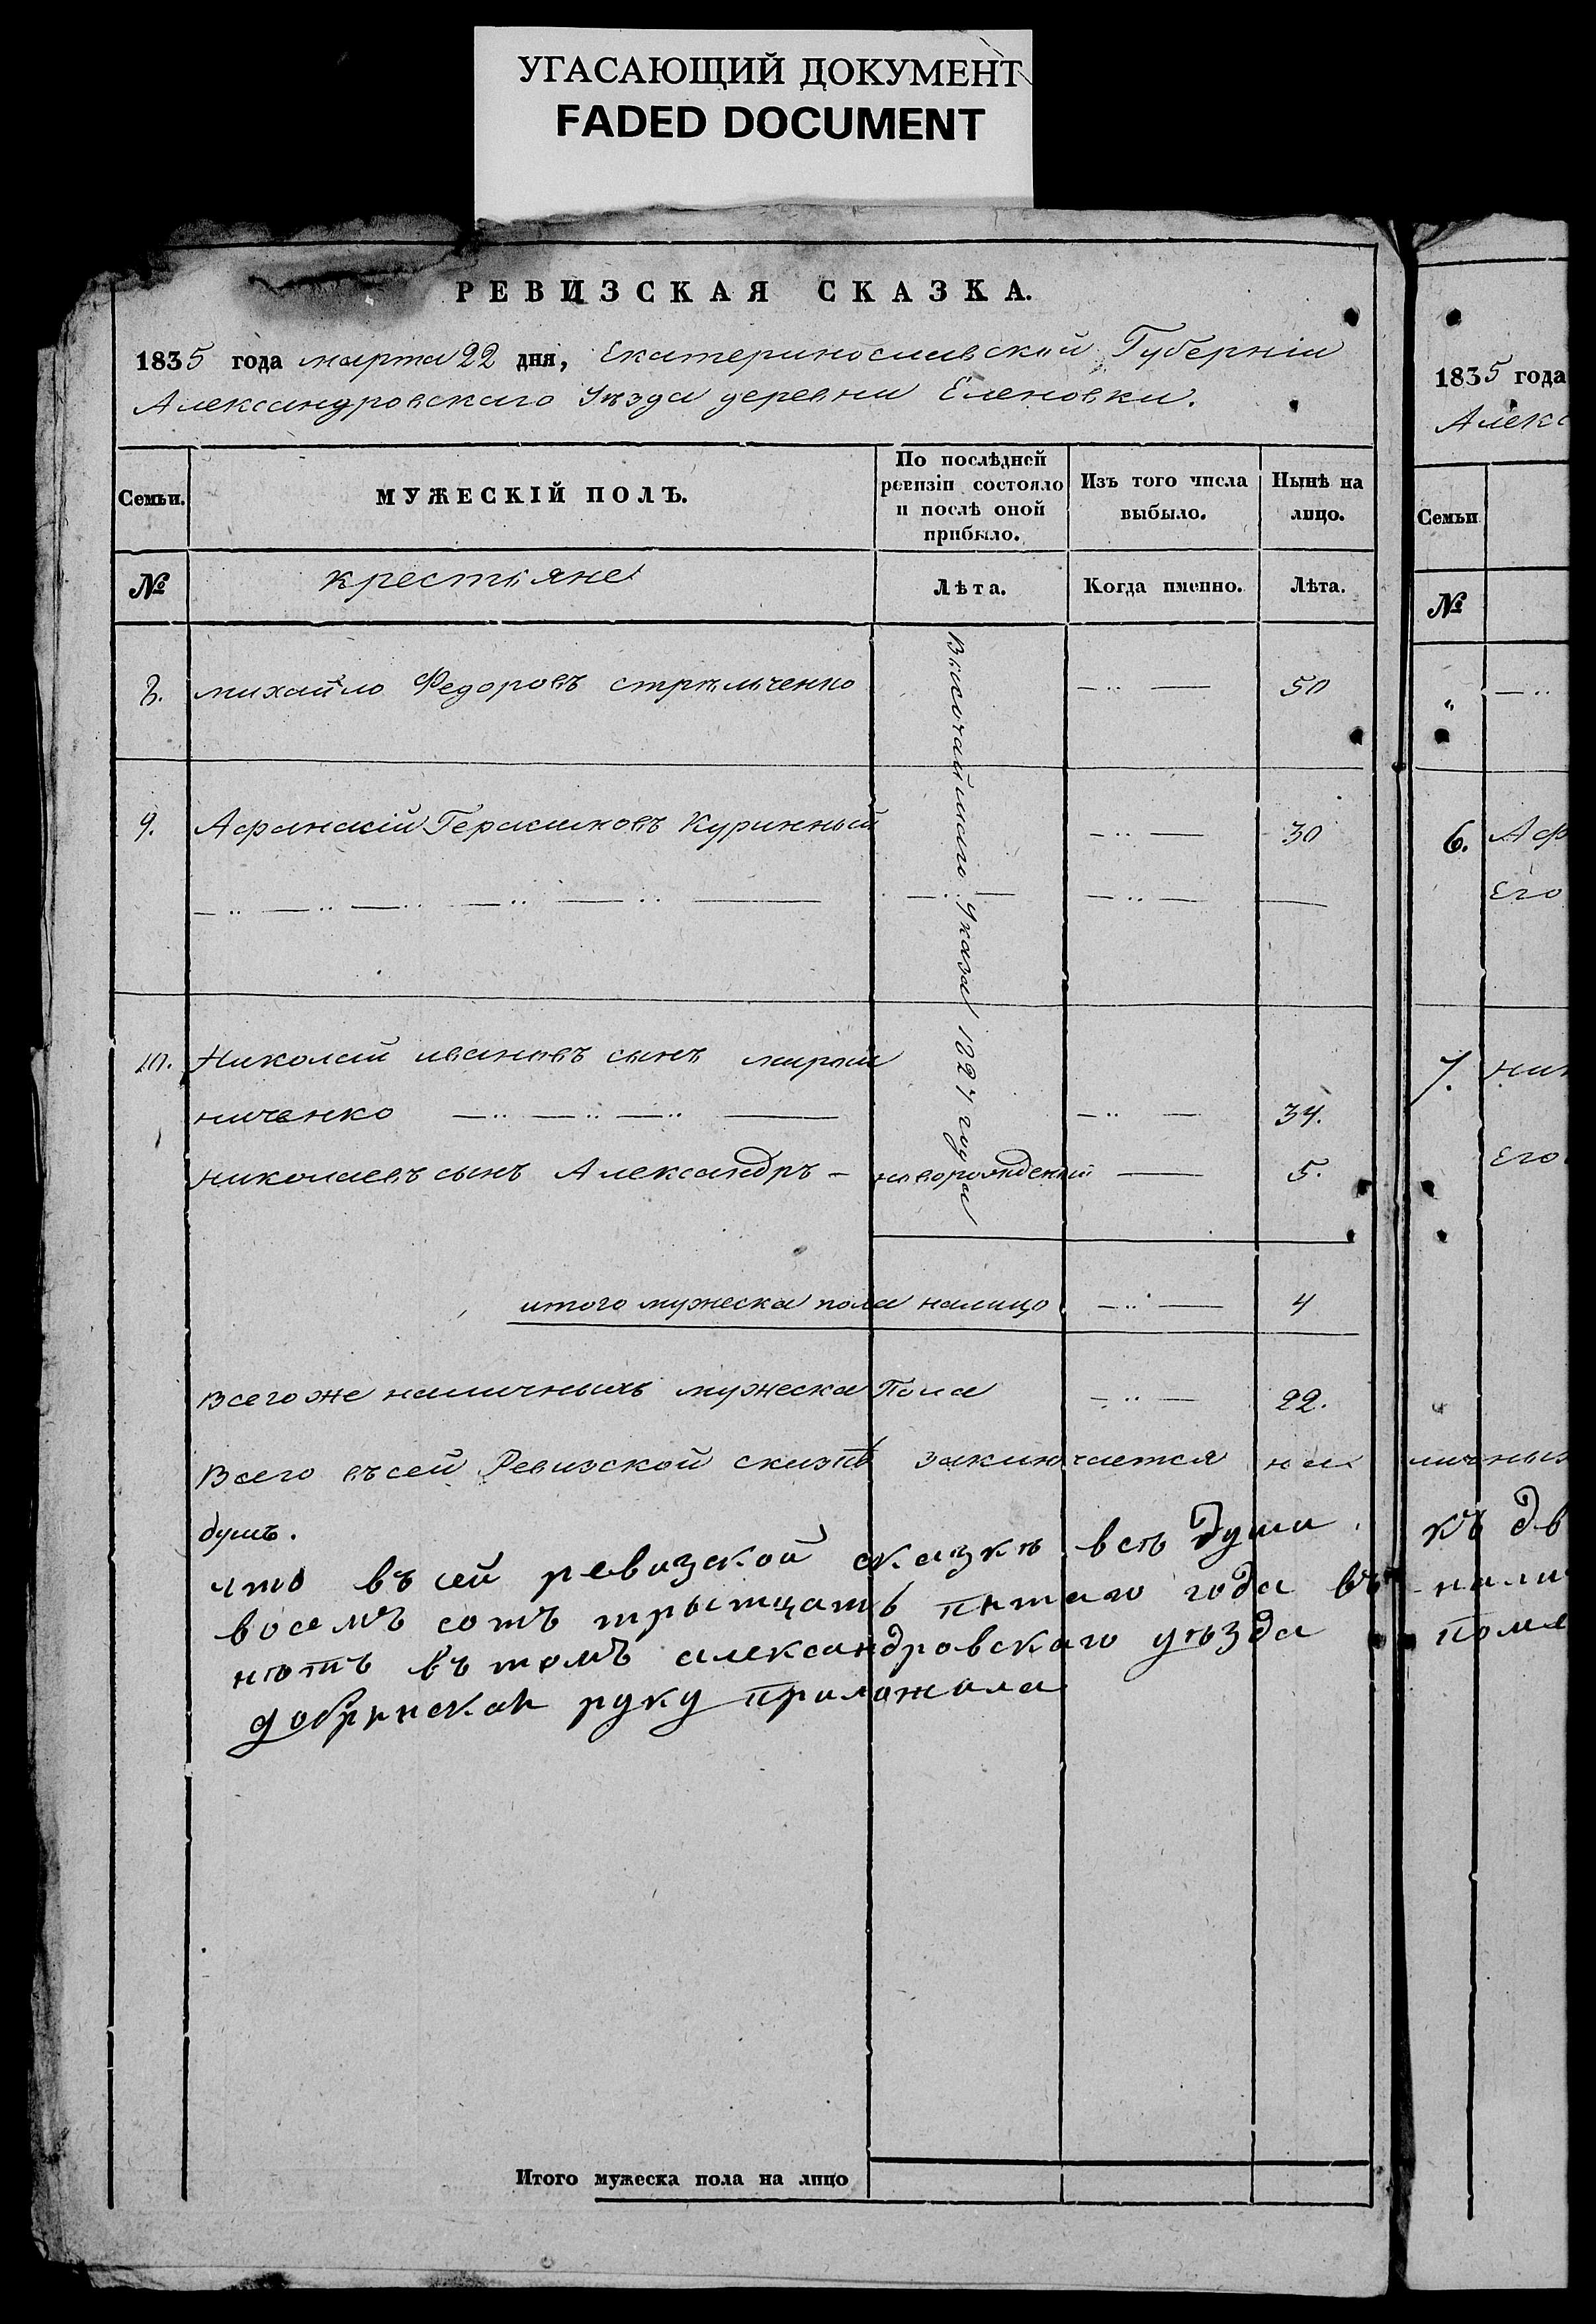 УГАСАЮЩИЙ ДОКУМЕНТ
FADED DOCUMENT
РЕВИЗСКАЯ СКАЗКА.
1835 года марта 22 дня, Екатеринославской Губерніи
Александровскаго Уѣзда деревни Еленовки.
Семьи.
МУЖЕСКІЙ ПОЛЪ.
По послѣдней ревизіи состояло и послѣ оной прибыло.
Изъ того числа выбыло.
Нынѣ на лицо.
№
крестьяне
Лѣта.
Когда именно.
Лѣта.
Высочайшаго Указа 1827 года
8. михайло Федоровъ стрѣльченко 50
9. Афанасій Герасимовъ Куринный 30
10. Николай ивановъ сынъ мирош
ниченко 34.
николаевъ сынъ Александръ – новорожденный 5.
итого мужеска пола налицо 4
Всего же наличныхъ мужеска Пола 22.
Всего въсей Ревизской сказкѣ заключается на
душъ.
что въ сей ревизской сказкѣ всѣ души
восемъ сотъ трытцать пятаго года въ
нотъ въ томъ александровскаго уѣзда
руку приложила
Итого мужеска пола на лицо
1835 года
Алекс
Семьи
№
6. Аф
Его
7. ник
Его
личных
къ дв
нали
поме